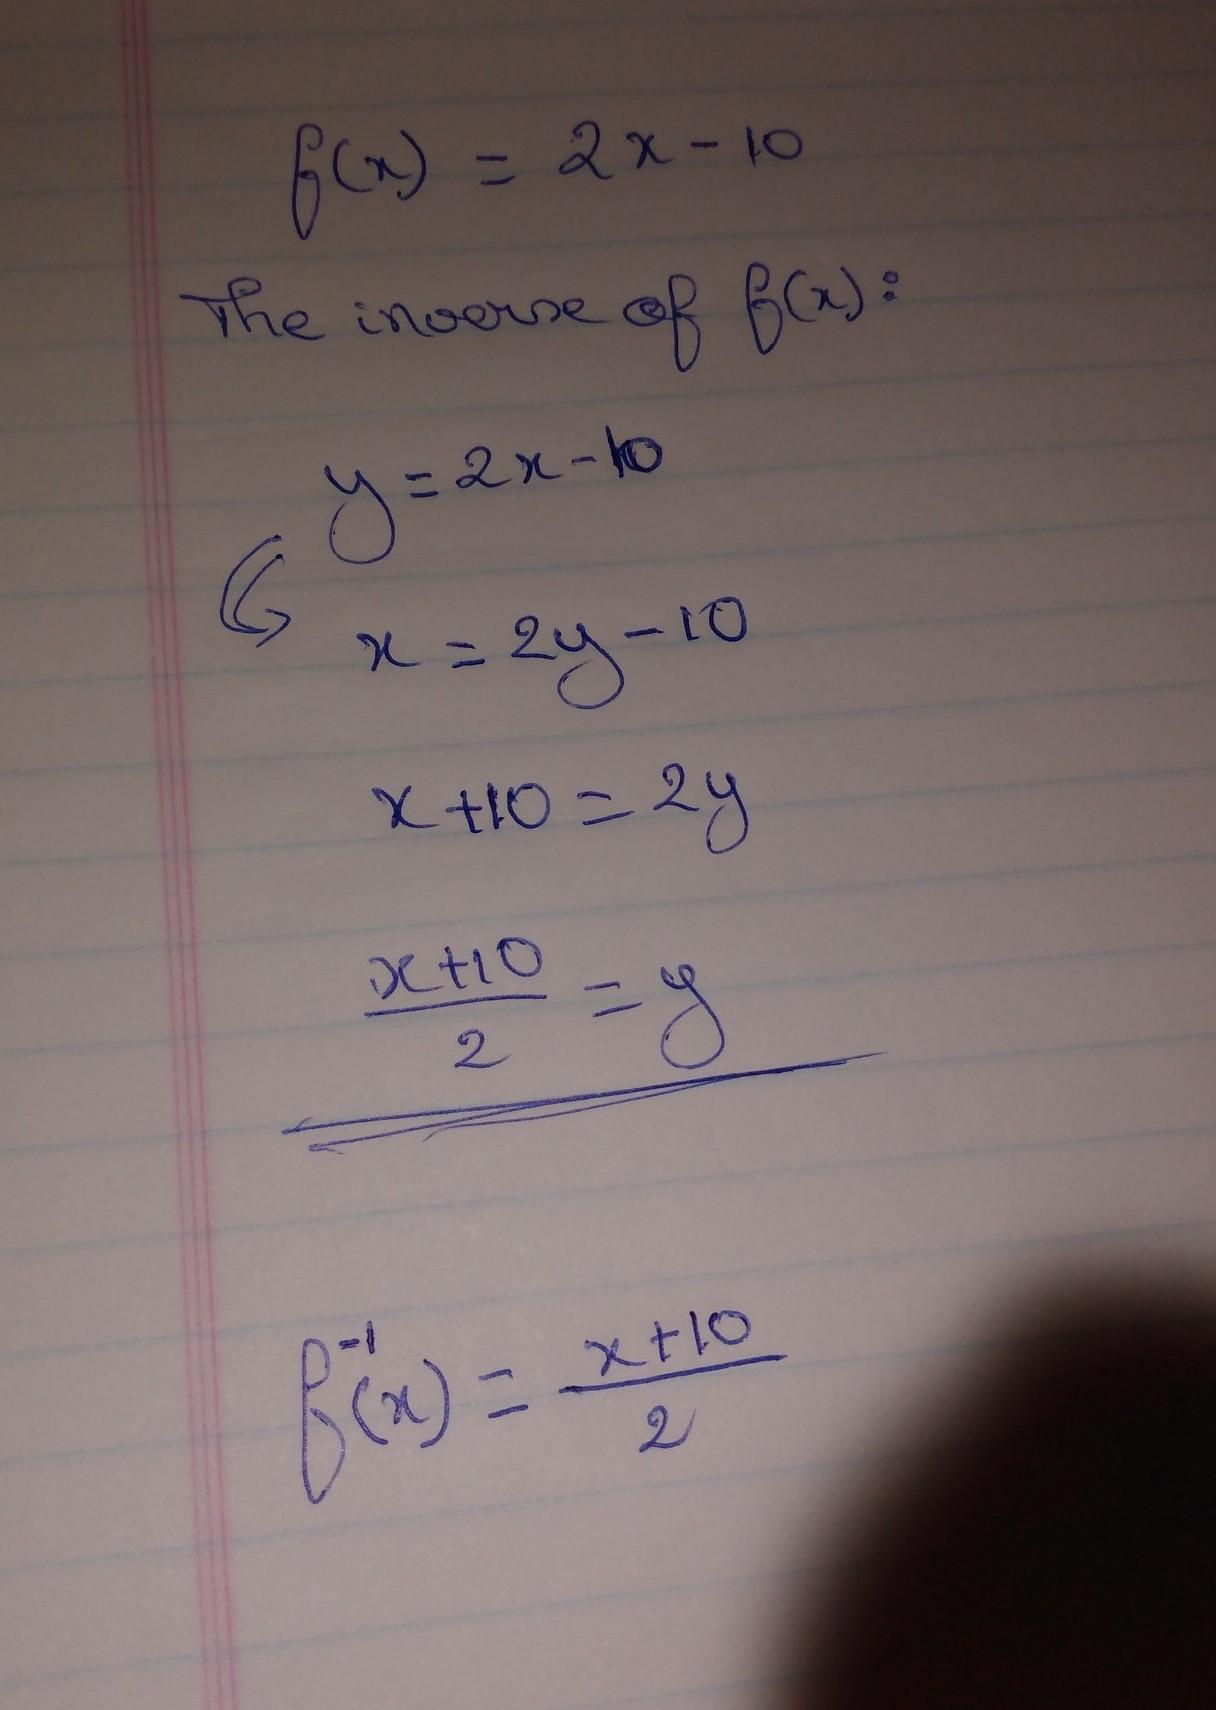 f(x) = 2x - 10
The inverse of f(x):
y = 2x - 10
x = 2y - 10
x + 10 = 2y
x + 10
2
= y
f⁻¹(x) =
x + 10
2